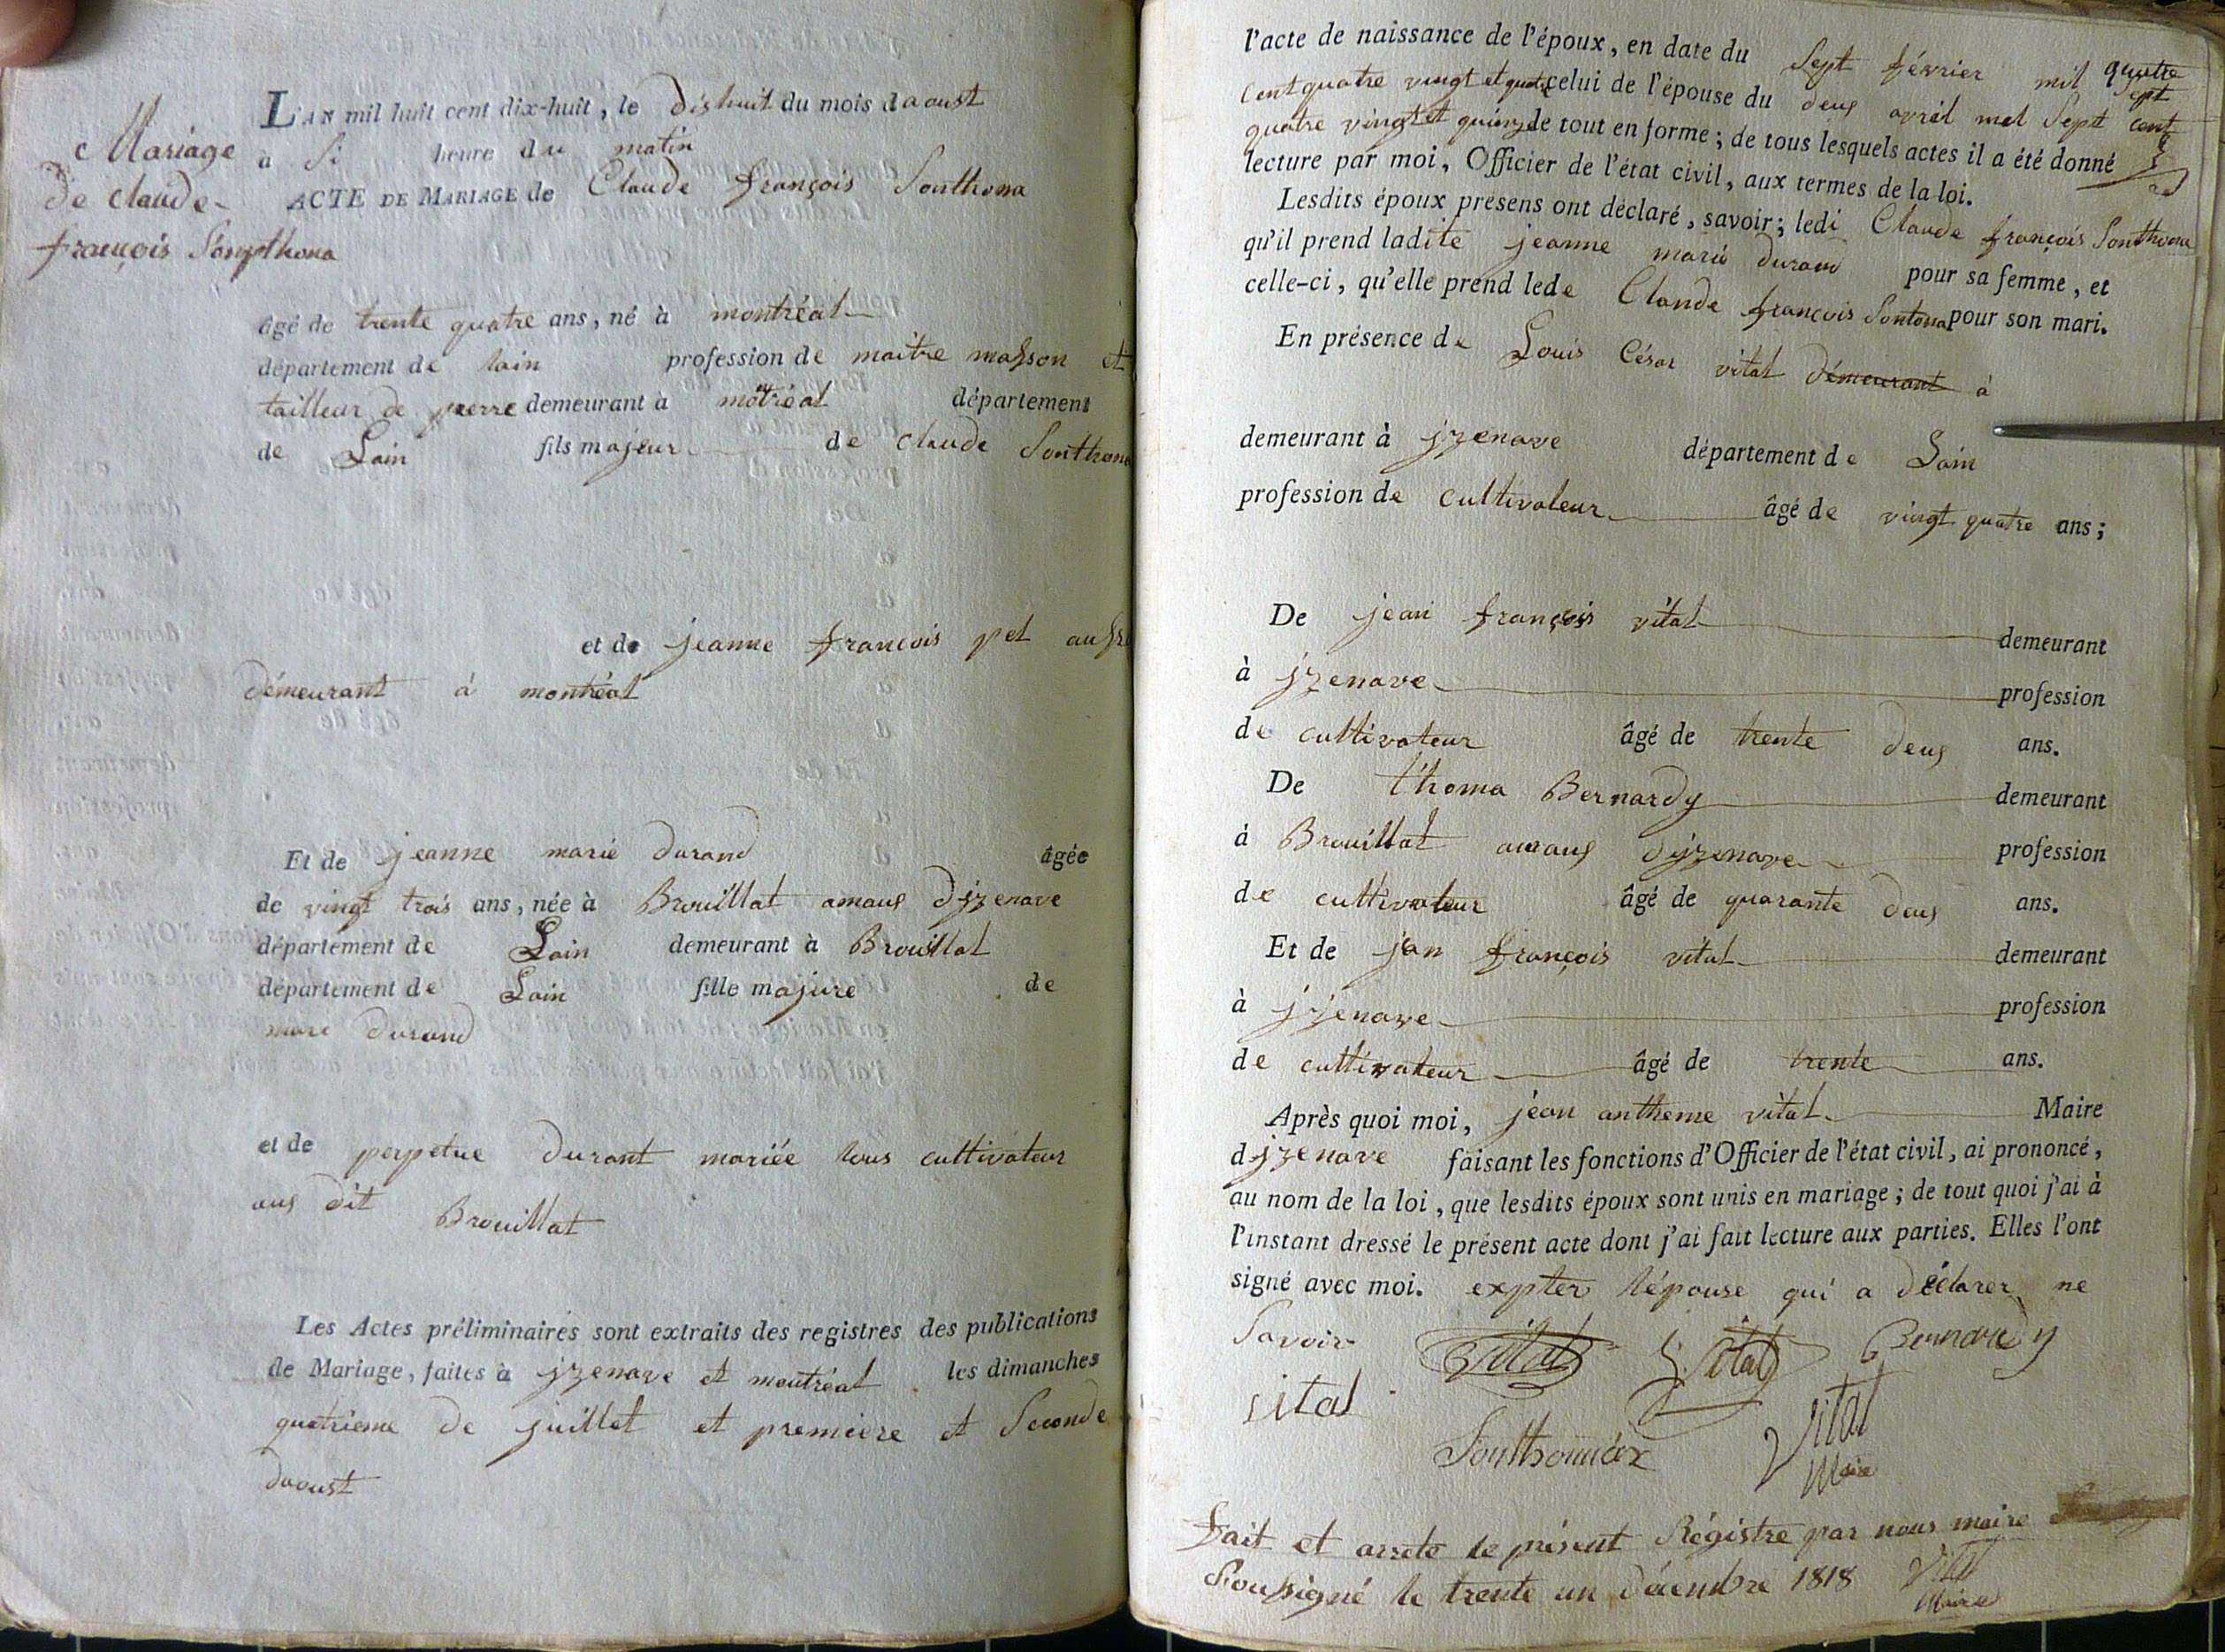 Mariage
de claude-
françois Sonpthona
L'AN mil huit cent dix-huit, le dishuit du mois daoust
à Si heure du matin
ACTE DE MARIAGE de Claude françois Sonthona
âgé de trente quatre ans, né à montréal
département de lain profession de maitre masson et
tailleur de pierre demeurant à motréal département
de Lain fils majeur de claude Sonthona
et de jeanne francois pet aussi
démeurant à montréal
Et de jeanne marie durand âgée
de vingt trois ans, née à Brouillat amaus djzenave
département de Lain demeurant à Brouillat
département de Lain fille majure de
marc durand
et de perpetue durant mariée tous cultivateur
aus dit Brouillat
Les Actes préliminaires sont extraits des registres des publications
de Mariage, faites à jzenave et montréal les dimanches
quatrieme de juillet et premiere et Seconde
daoust
l'acte de naissance de l'époux, en date du Sept février mil quatre
Cent quatre vingt et quatre celui de l'épouse du deus avril mil Sept cent
quatre vingt et quinze de tout en forme; de tous lesquels actes il a été donné
lecture par moi, Officier de l'état civil, aux termes de la loi.
Lesdits époux présens ont déclaré, savoir; ledi Claude françois Sonthona
qu'il prend ladite jeanne marie durand pour sa femme, et
celle-ci, qu'elle prend lede Claude françois Sontona pour son mari.
En présence de Louis César vital démeurant à
demeurant à jzenave département de Lain
profession de cultivateur âgé de vingt quatre ans;
De jean françois vital demeurant
à jzenave profession
de cultivateur âgé de trente deus ans.
De thoma Bernardy demeurant
à Brouillat amaus djzenave profession
de cultivateur âgé de quarante deus ans.
Et de jan françois vital demeurant
à jzenave profession
de cultivateur âgé de trente ans.
Après quoi moi, jean antheme vital Maire
djzenave faisant les fonctions d'Officier de l'état civil, ai prononcé,
au nom de la loi, que lesdits époux sont unis en mariage; de tout quoi j'ai à
l'instant dressé le présent acte dont j'ai fait lecture aux parties. Elles l'ont
signé avec moi. expter lépouse qui a déclarer ne
Savoir Vital Vital Bernardy
vital
Sonthonnax Vital
Maire
Fait et arreté le présent Régistre par nous maire
Soussigné le trente un décembre 1818 Vital
Maire